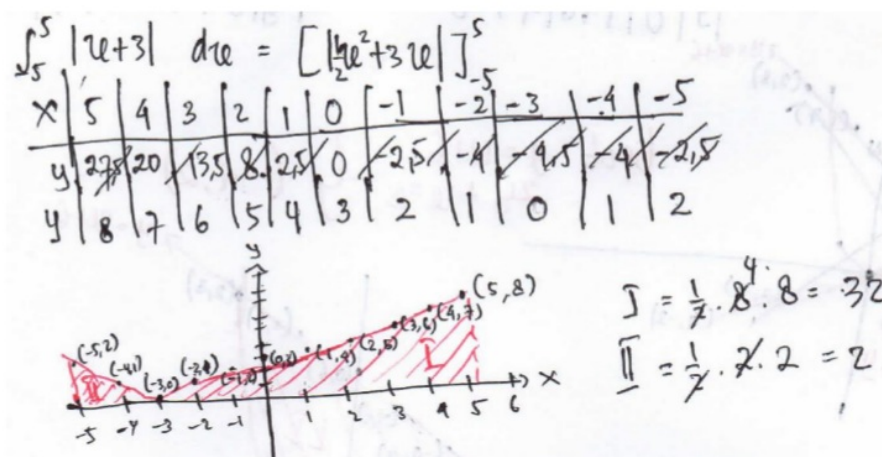 ∫₅⁵ |x+3| dx = [|½x²+3x|]₋₅⁵
x | 5 | 4 | 3 | 2 | 1 | 0 | -1 | -2 | -3 | -4 | -5
y | 27,5 | 20 | 13,5 | 8 | 2,5 | 0 | -2,5 | -4 | -4,5 | -4 | -2,5
y | 8 | 7 | 6 | 5 | 4 | 3 | 2 | 1 | 0 | 1 | 2
y
(5,8)
(4,7)
(3,6)
(2,5)
(1,4)
(-5,2)
(-4,1)
(-3,0)
I
II
x
-5 -4 -3 -2 -1 1 2 3 4 5 6
I = ½ · 8 · 8 = 32
4
II = ½ · 2 · 2 = 2